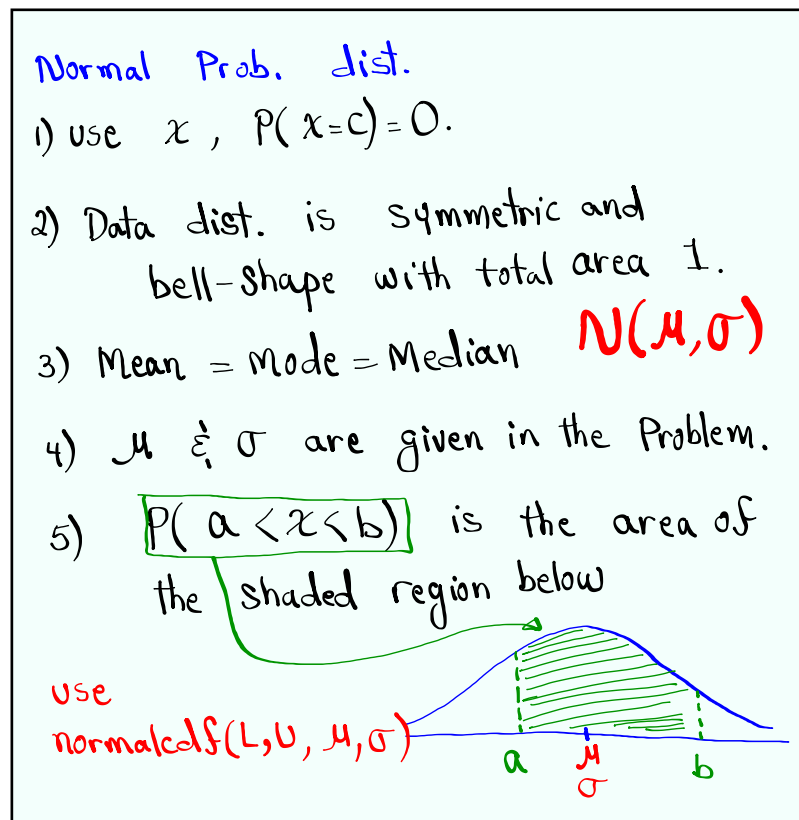 Normal Prob. dist.
1) use x , P( x=c)=0.
2) Data dist. is symmetric and
bell-shape with total area 1.
3) Mean = Mode = Median
N(μ,σ)
4) μ & σ are given in the Problem.
5) P( a < x < b) is the area of
the shaded region below
use
normalcdf(L, U, μ, σ)
a μ b
σ